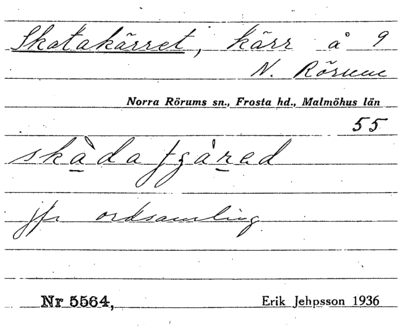 Skatakärret, kärr å 9
N. Rörum
Norra Rörums sn., Frosta hd., Malmöhus län
55
jfr ordsamling
Nr 5564,
Erik Jehpsson 1936